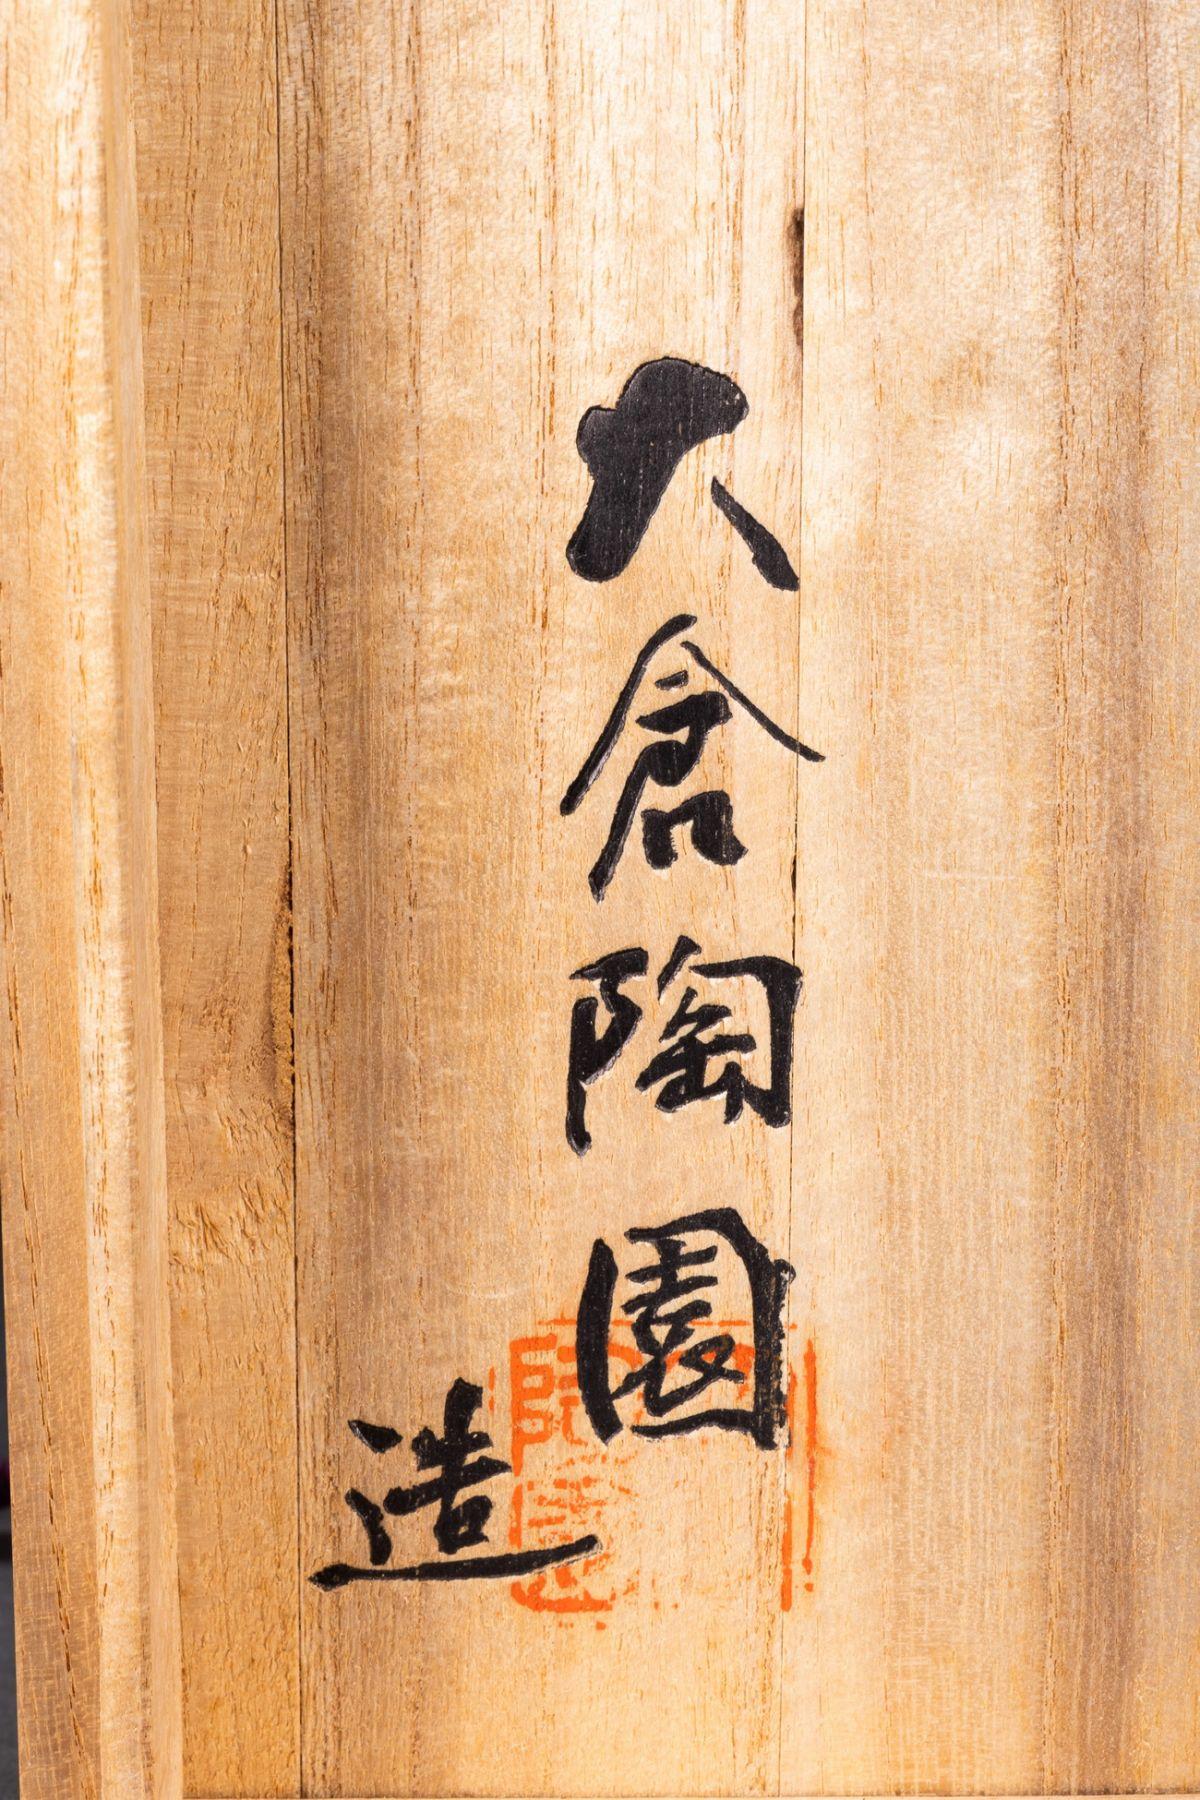 大倉陶園
造